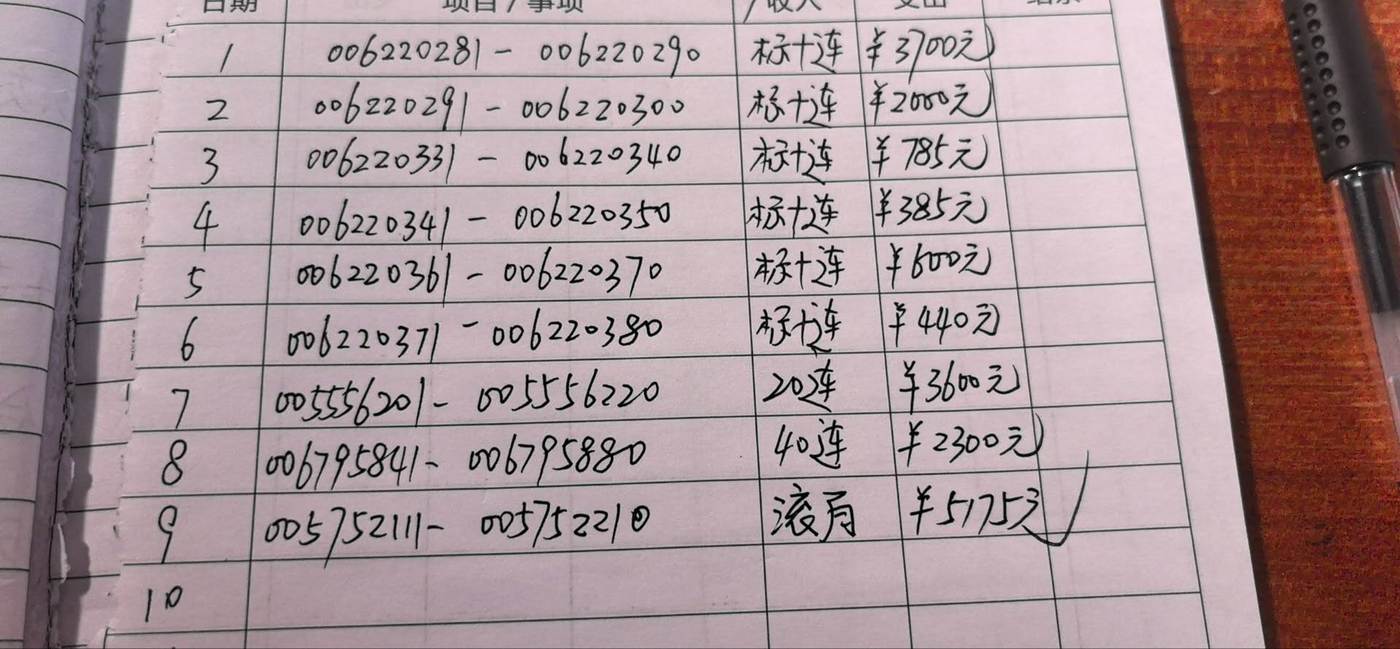 日期 项目/事项 收入 支出 结余
1 006220281- 006220290 标十连 ¥3700元
2 006220291- 006220300 标十连 ¥2000元
3 006220331- 006220340 标十连 ¥785元
4 006220341- 006220350 标十连 ¥385元
5 006220361- 006220370 标十连 ¥600元
6 006220371- 006220380 标十连 ¥440元
7 005556201- 005556220 20连 ¥3600元
8 006795841- 006795880 40连 ¥2300元
9 005752111- 005752210 ¥5175元
10